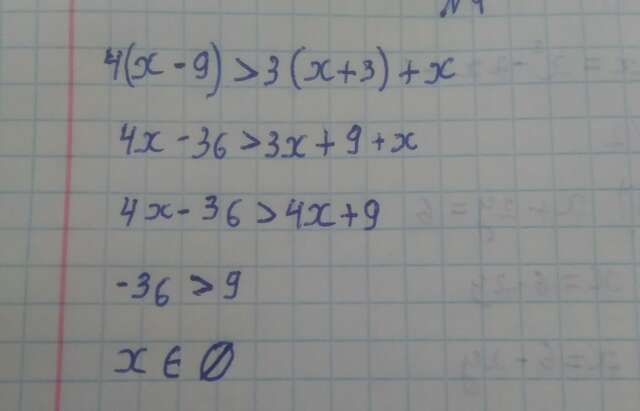 4(x - 9) > 3(x + 3) + x
4x - 36 > 3x + 9 + x
4x - 36 > 4x + 9
-36 > 9
x ∈ ∅